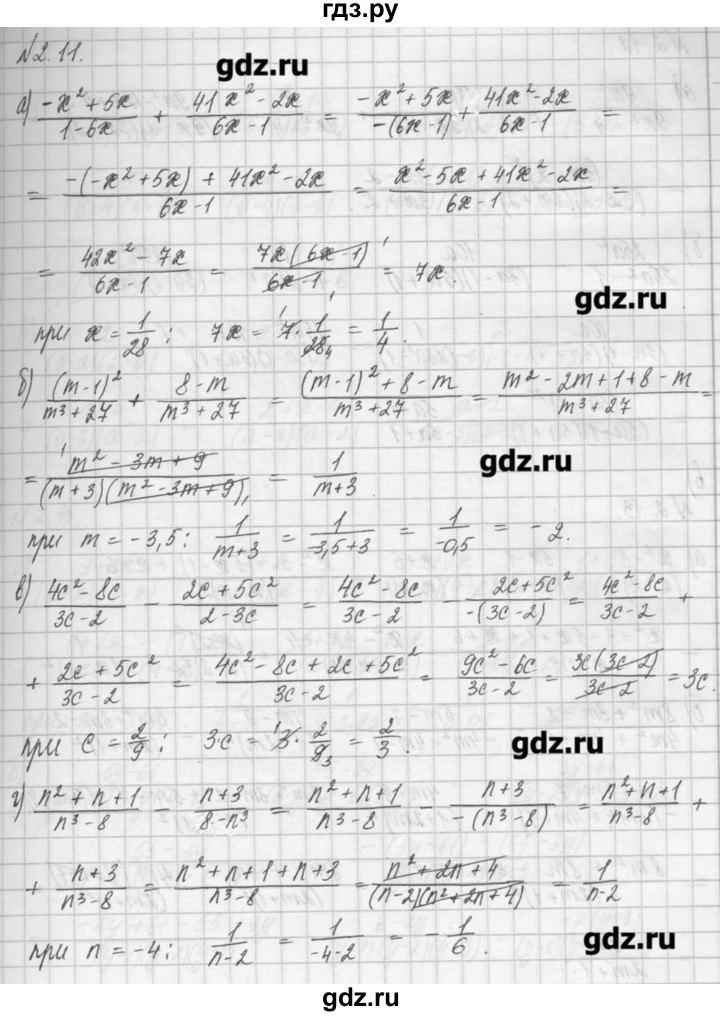 гдз.ру
№2.11.
gdz.ru
а) (-x² + 5x)/(1-6x) + (41x² - 2x)/(6x-1) = (-x² + 5x)/(-(6x-1)) + (41x² - 2x)/(6x-1) =
= (-(-x² + 5x) + 41x² - 2x)/(6x-1) = (x² - 5x + 41x² - 2x)/(6x-1) =
= (42x² - 7x)/(6x-1) = (7x(6x-1)¹)/(6x-1) = 7x.
gdz.ru
при x = 1/28 : 7x = 7¹ · 1¹/28₄ = 1/4.
б) (m-1)²/(m³+27) + (8-m)/(m³+27) = ((m-1)² + 8 - m)/(m³+27) = (m² - 2m + 1 + 8 - m)/(m³+27) =
gdz.ru
= ¹(m² - 3m + 9)/((m+3)(m² - 3m + 9)₁) = 1/(m+3).
при m = -3,5 : 1/(m+3) = 1/(-3,5+3) = 1/(-0,5) = -2.
в) (4c² - 8c)/(3c-2) - (2c + 5c²)/(2-3c) = (4c² - 8c)/(3c-2) - (2c + 5c²)/(-(3c-2)) = (4c² - 8c)/(3c-2) +
+ (2c + 5c²)/(3c-2) = (4c² - 8c + 2c + 5c²)/(3c-2) = (9c² - 6c)/(3c-2) = (3c(3c-2))/(3c-2) = 3c.
при c = 2/9 : 3c = ¹3 · 2/9₃ = 2/3.
gdz.ru
г) (n² + n + 1)/(n³-8) - (n+3)/(8-n³) = (n² + n + 1)/(n³-8) - (n+3)/(-(n³-8)) = (n² + n + 1)/(n³-8) +
+ (n+3)/(n³-8) = (n² + n + 1 + n + 3)/(n³-8) = (n² + 2n + 4)/((n-2)(n² + 2n + 4)) = 1/(n-2)
при n = -4 : 1/(n-2) = 1/(-4-2) = -1/6.
gdz.ru
gdz.ru